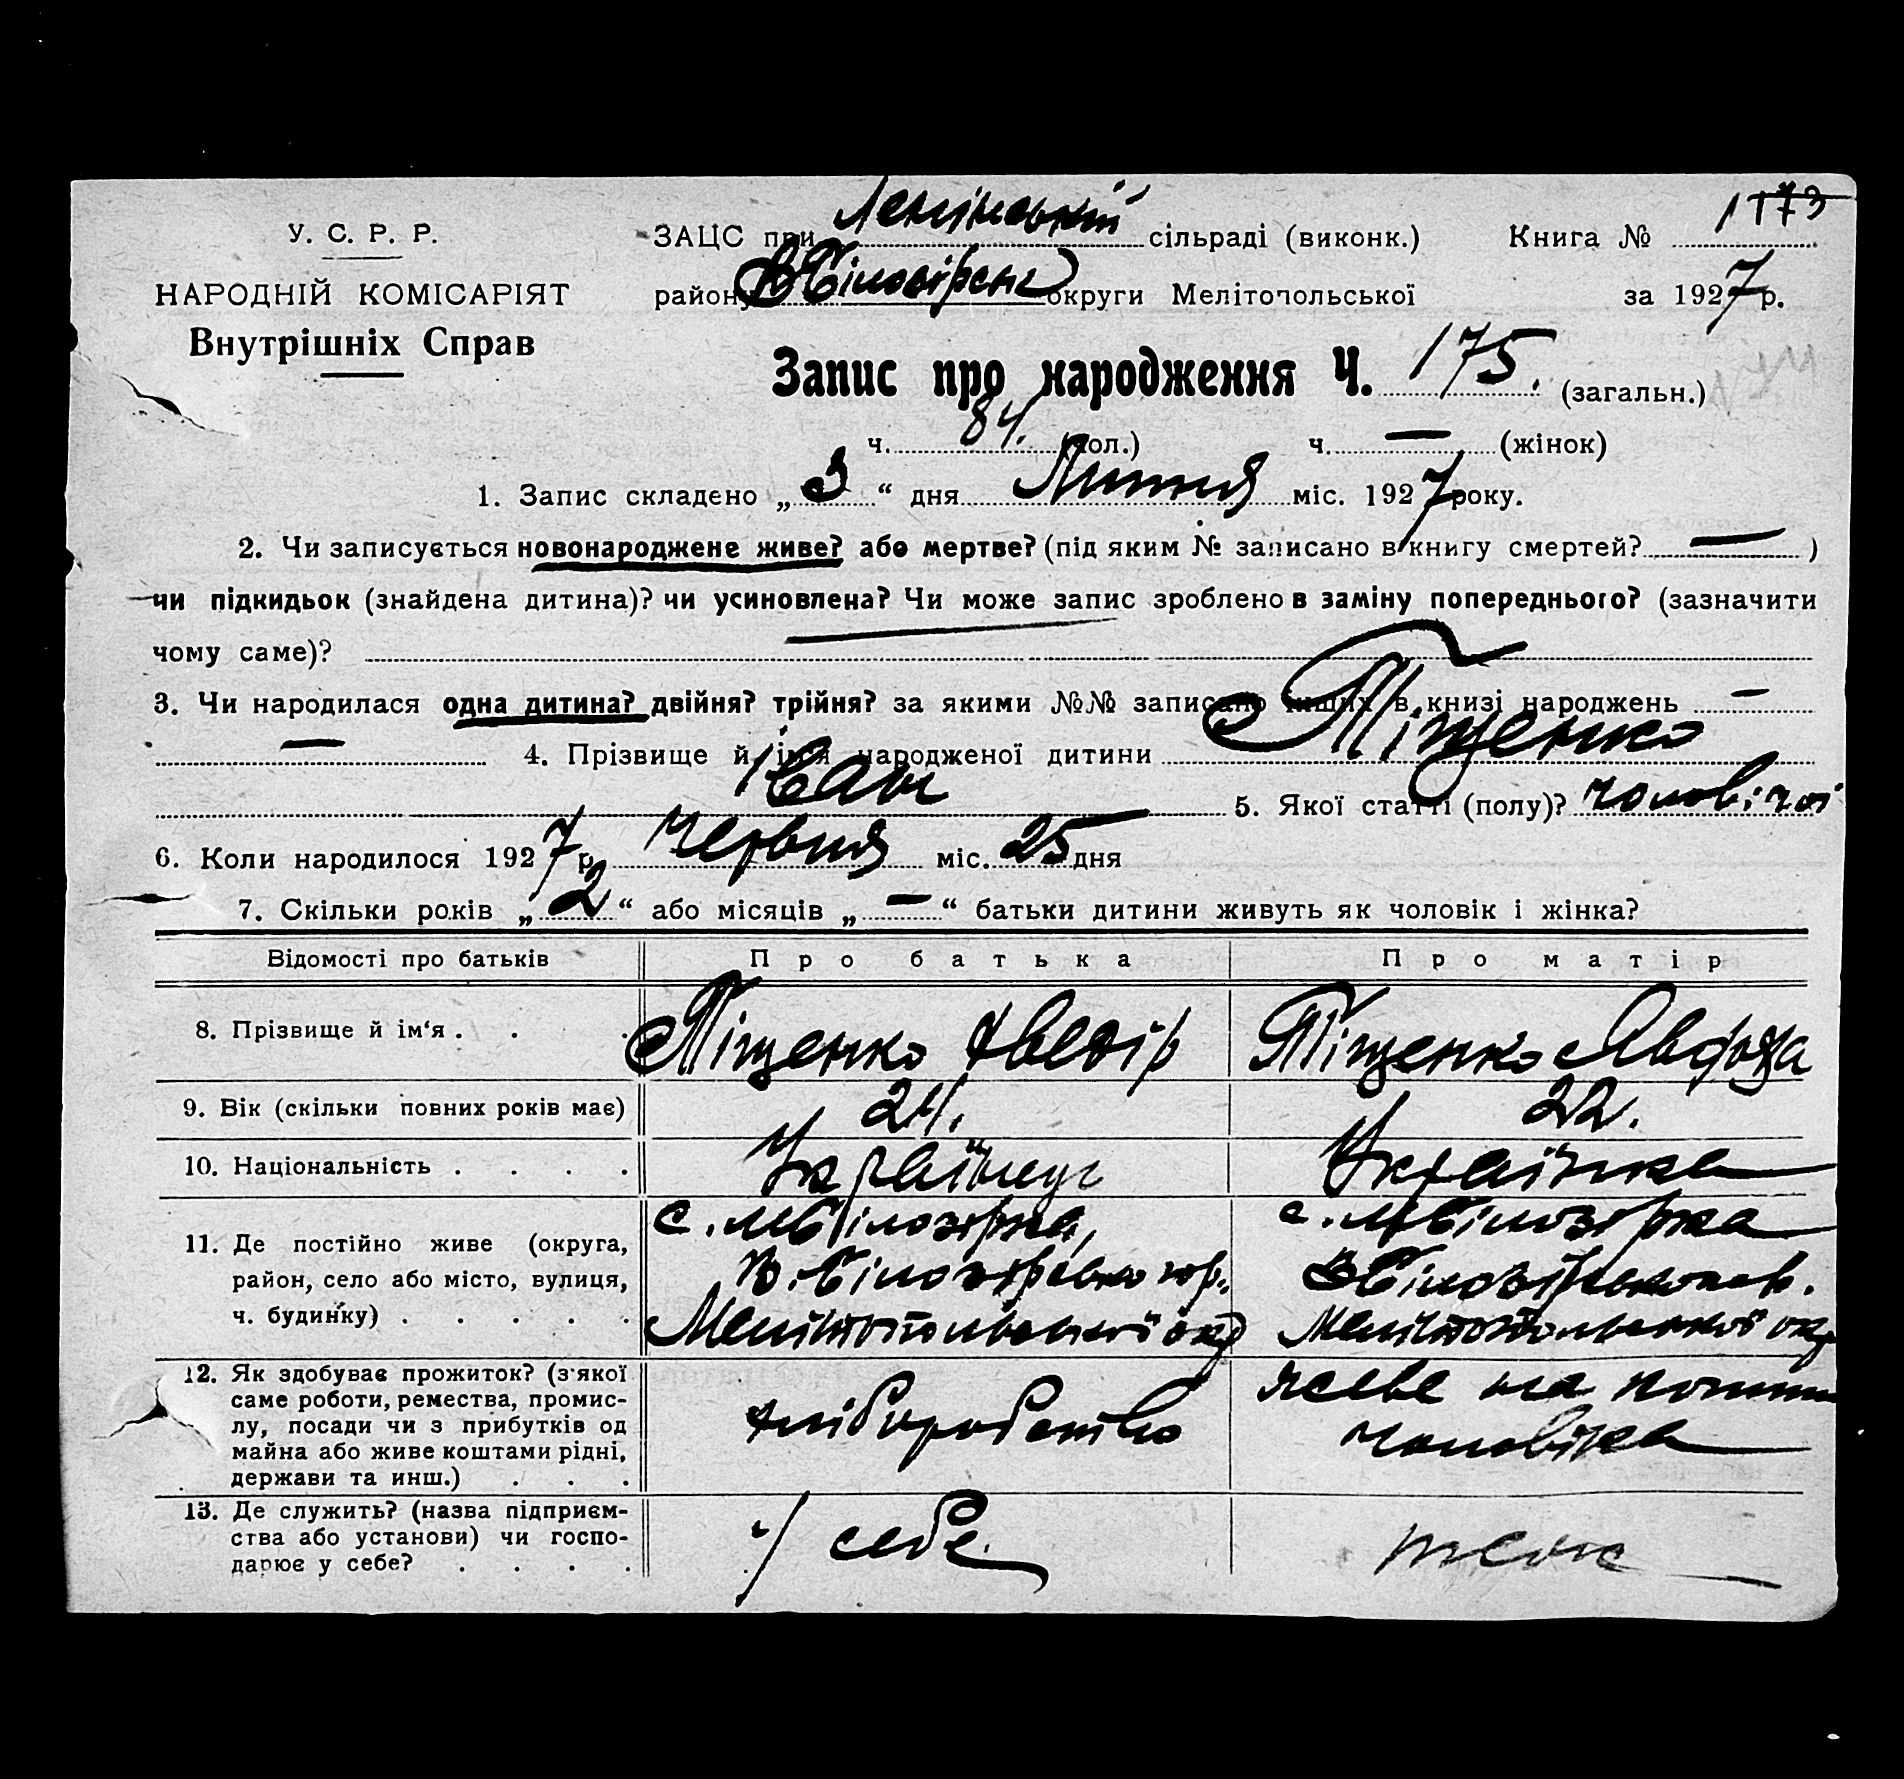 У. С. Р. Р.
НАРОДНІЙ КОМІСАРІЯТ
Внутрішніх Справ
ЗАЦС при Ленінській сільраді (виконк.) Книга №
району В Білозірськ округи Мелітопольської за 1927 р.
Запис про народження Ч. 175. (загальн.)
ч. 84. (пол.) ч. — (жінок)
1. Запис складено „3“ дня Липня міс. 1927 року.
2. Чи записується новонароджене живе? або мертве? (під яким № записано в книгу смертей? — )
чи підкидьок (знайдена дитина)? чи усиновлена? Чи може запис зроблено в заміну попереднього? (зазначити
чому саме)?
3. Чи народилася одна дитина? двійня? трійня? за якими №№ записано инших в книзі народжень —
— 4. Прізвище й ім'я народженої дитини Тіщенко
Іван 5. Якої статті (полу)? чоловічої
6. Коли народилося 1927 р. Червня міс. 25 дня
7. Скільки років „2“ або місяців „—“ батьки дитини живуть як чоловік і жінка?
Відомості про батьків Про батька Про матір
8. Прізвище й ім‘я . . . Тіщенко Хведір Тіщенко Явдоха
9. Вік (скільки повних років має) 24. 22.
10. Національність . . . . Українець Українка
11. Де постійно живе (округа,
район, село або місто, вулиця,
ч. будинку) . . . . .
с. М Білозірка,
В. Білозірського р.
Мелітопольської окр
с. М Білозірка
В Білозірського р.
Мелітопольської окр
12. Як здобуває прожиток? (з'якої
саме роботи, ремества, промис-
лу, посади чи з прибутків од
майна або живе коштами рідні,
держави та инш.) . . .
хліборобство
живе на кошти
чоловіка
13. Де служить? (назва підприєм-
ства або установи) чи госпо-
дарює у себе? . . . .
у себе.
теж